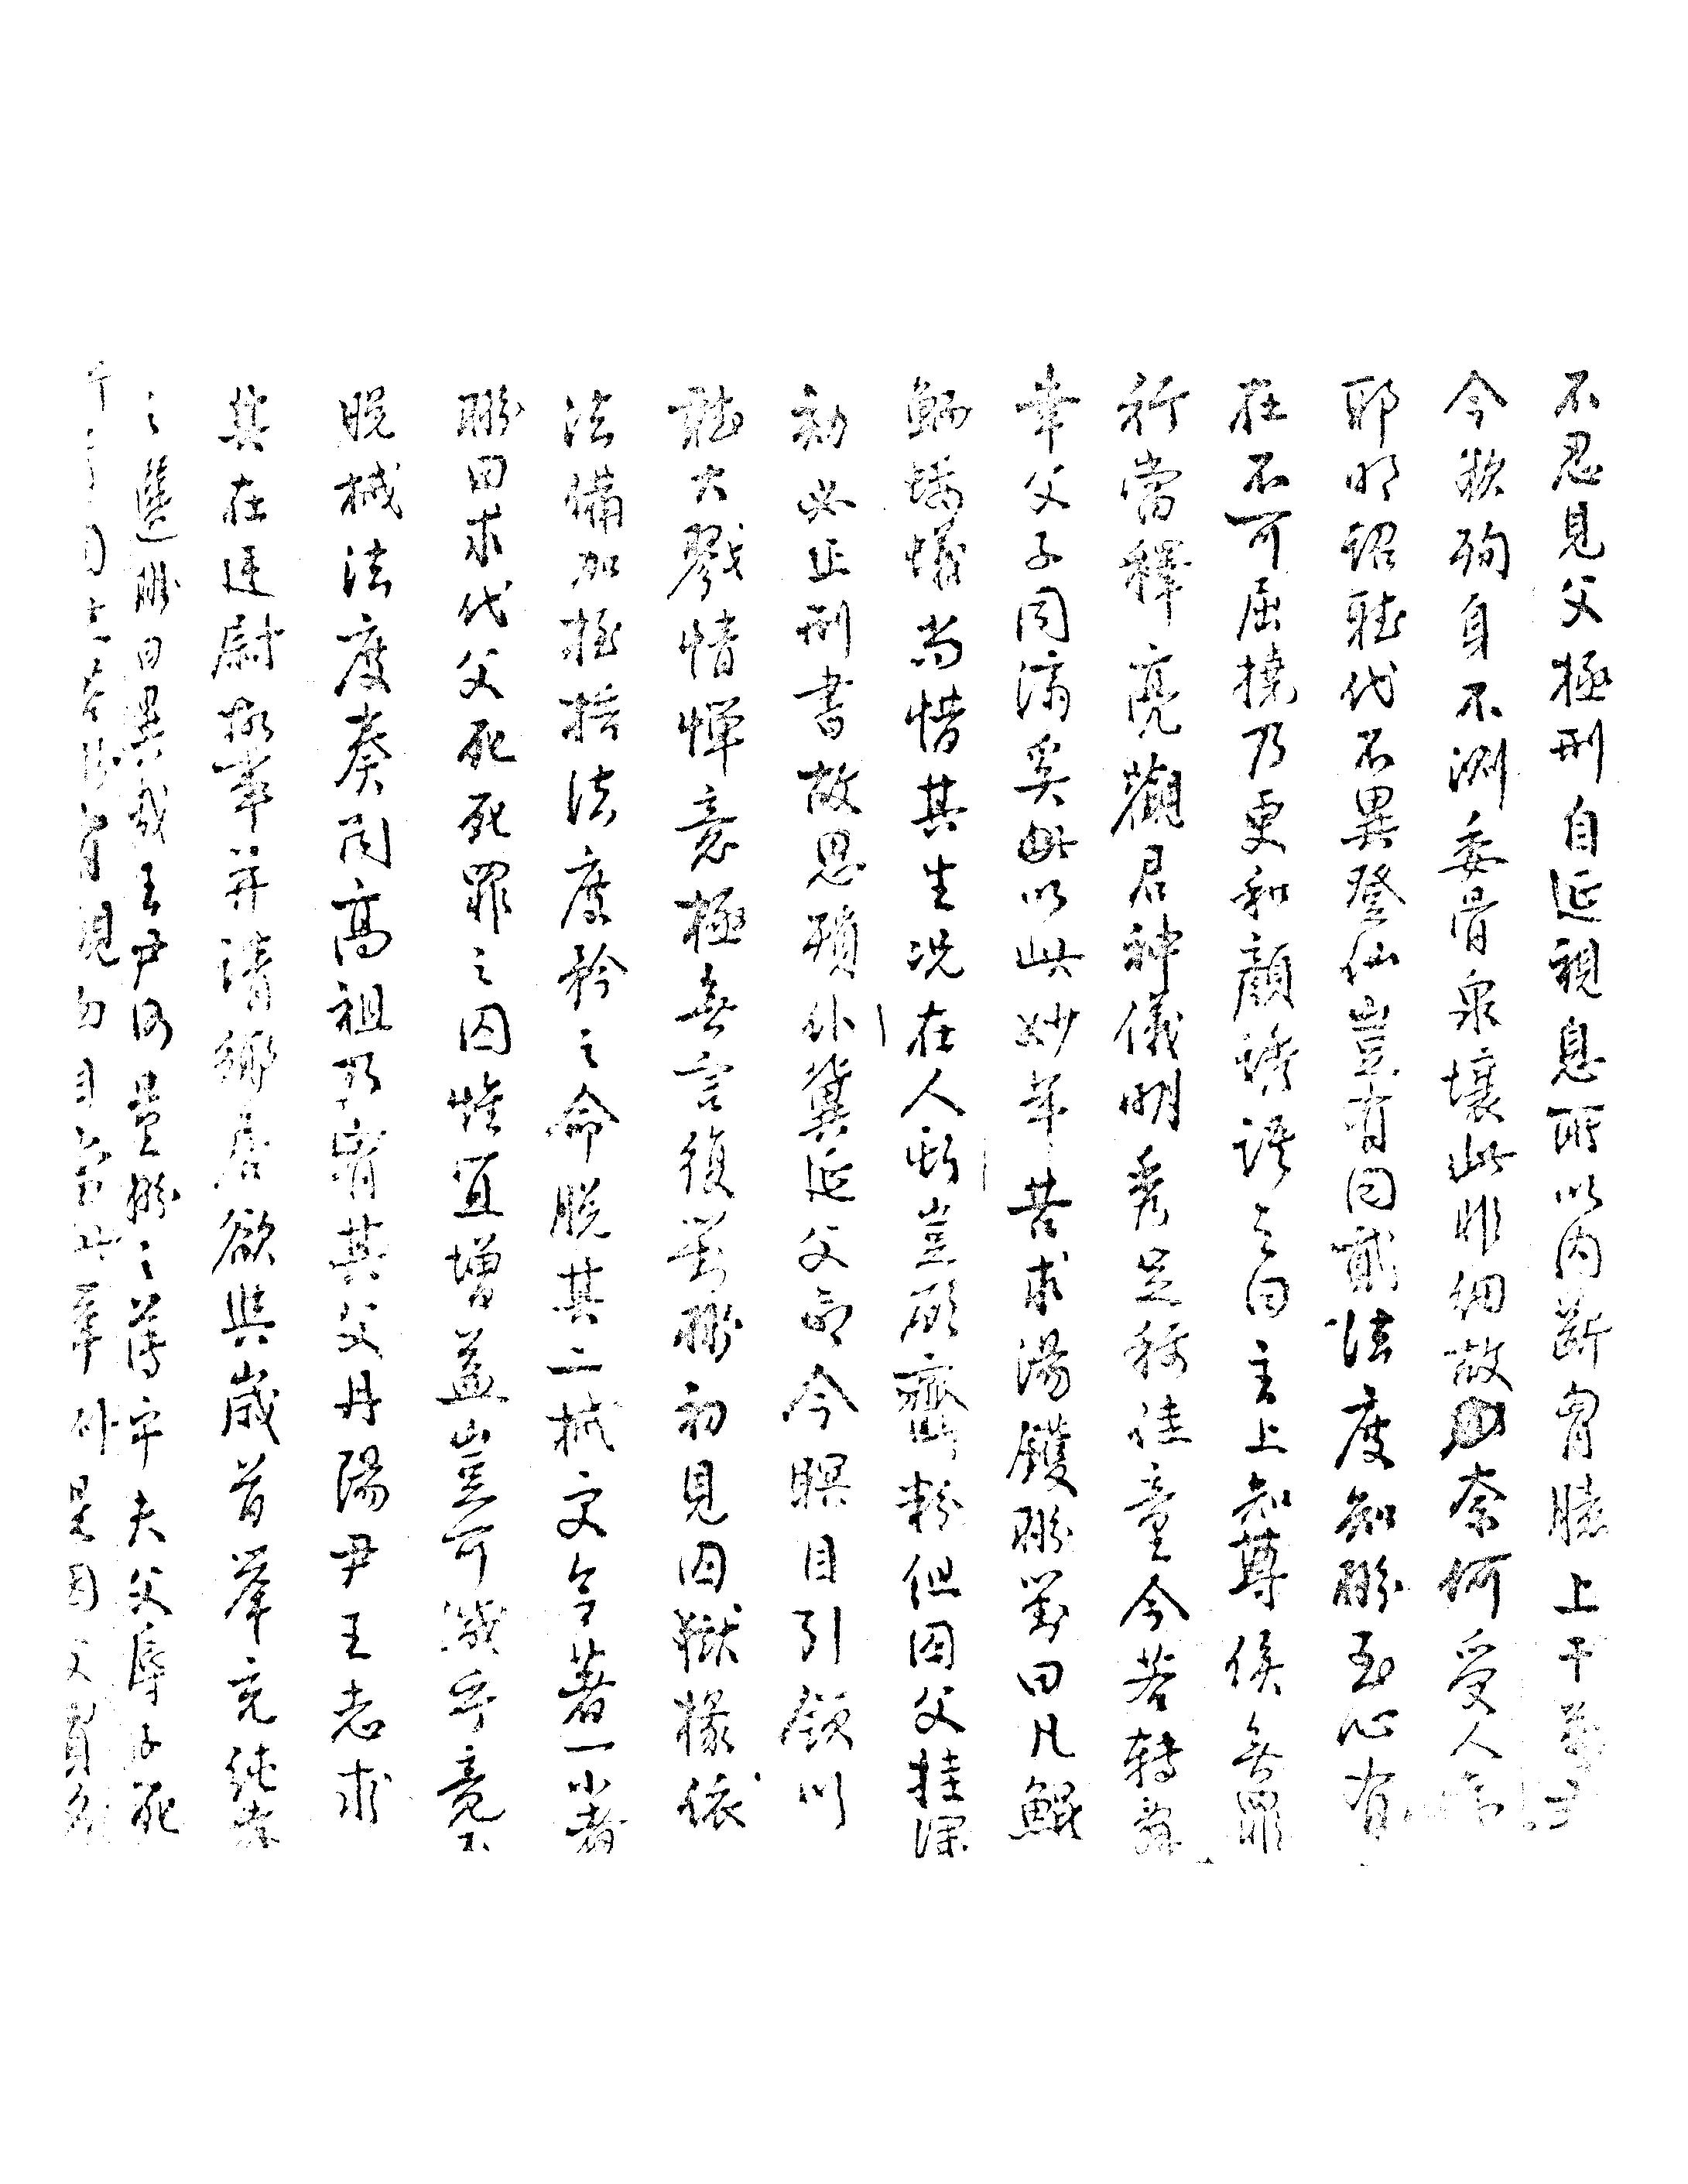 不忍見父極刑自延視息所以内斷胷臆上干萬乘
今欲殉身不測委骨泉壤此非細故奈何受人言
耶明詔聽代不異登仙豈有囘貳法度知翂至心有
在不可屈撓乃更和顏誘語之曰主上知尊侯無罪
行當釋亮觀君神儀明秀足稱佳童今若轉辭
幸父子同濟奚此以此妙年苦求湯鑊翂對曰凡鯤
鮞螻蟻尚惜其生況在人斯豈願齏粉但囚父挂深
劾必正刑書故思殞仆冀延父命今瞑目引領以
聽大戮情殫意極無言復對翂初見囚獄掾依
法備加桎梏法度矜之命脫其二械更令著一小者
翂曰求代父死死罪之囚惟宜增益豈可減乎竟不
脫械法度奏聞高祖乃宥其父丹陽尹王志求
其在廷尉故事并請鄉居欲與歲首舉充純孝
之選翂曰異哉王尹何量翂之薄乎夫父辱子死
有靦面目當此舉則是因父買名